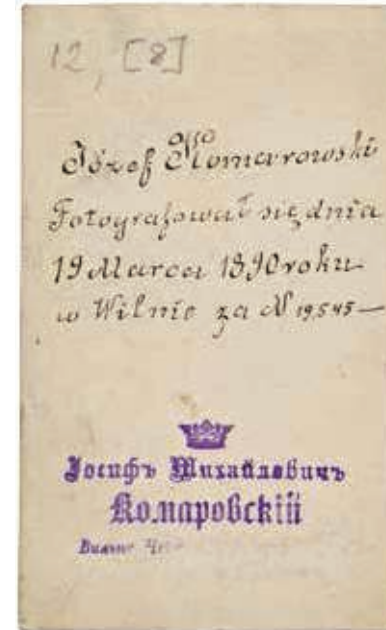 12, [8]
Józef Komarowski
Fotografował się dnia
19 Marca 1890 roku
w Wilnie za N 19545 —
Іосифъ Михайловичъ
Комаровскій